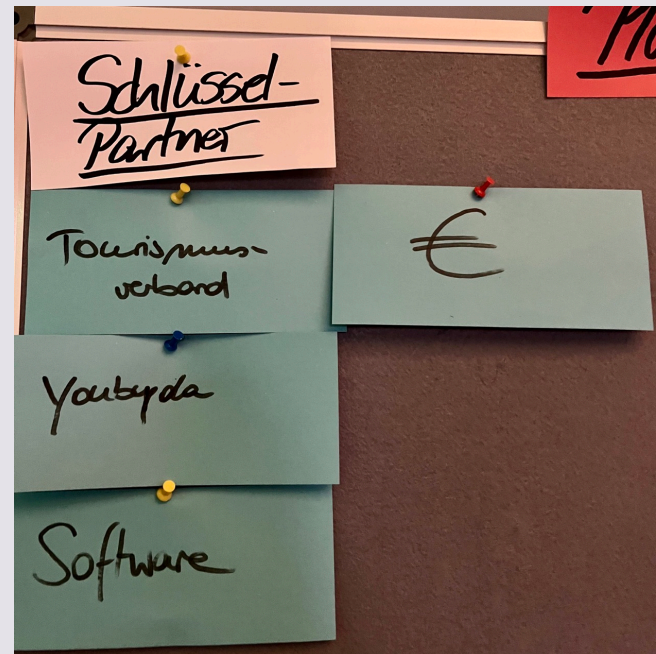 Schlüssel-
Partner
Tourismus-
verband
€
Youbyda
Software